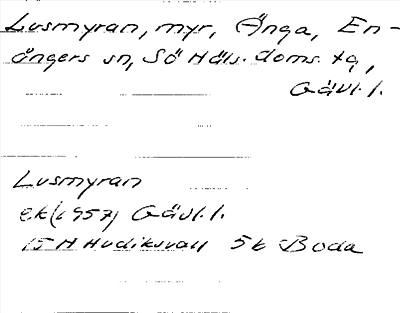 Lusmyran, myr, Änga, En-
ångers sn, Sö Häls. doms. tg,
Gävl. l.
Lusmyran
ek (1957) Gävl. l.
15 H Hudiksvall 5b Boda